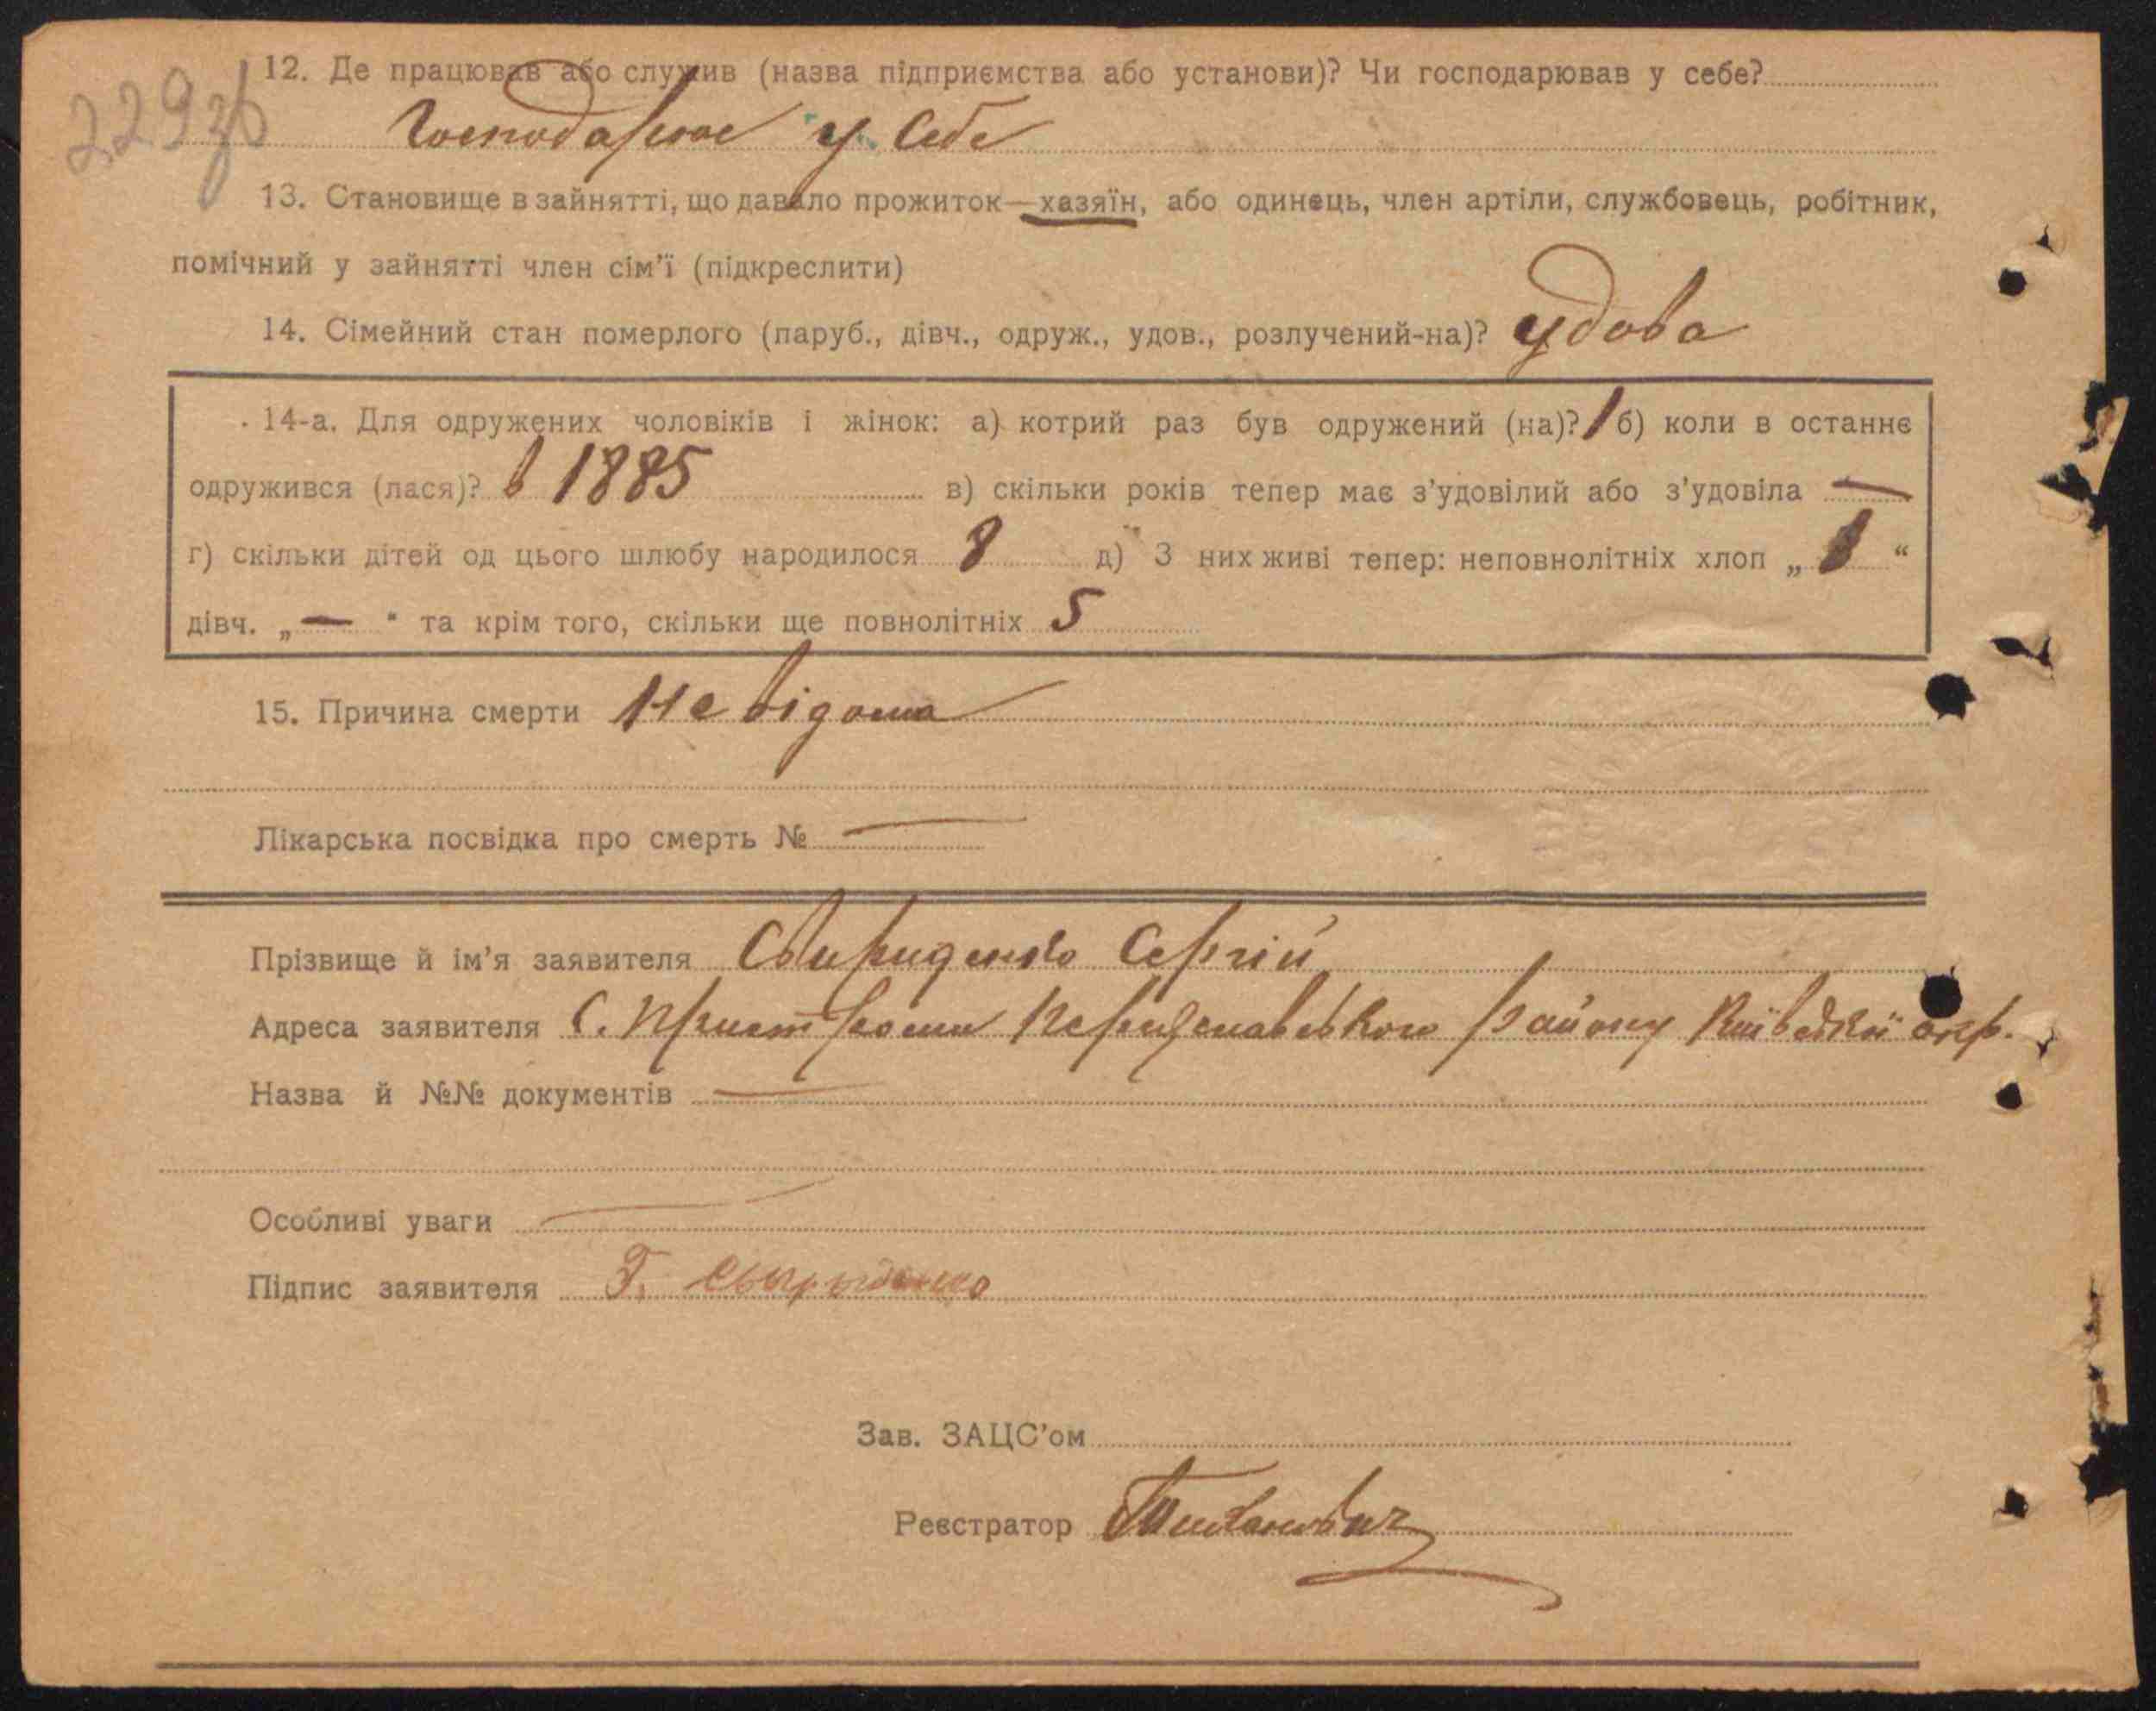 229зв
12. Де працював або служив (назва підприємства або установи)? Чи господарював у себе?
Господарює у себе
13. Становище в зайнятті, що давало прожиток—хазяїн, або одинець, член артіли, службовець, робітник,
помічний у зайнятті член сім'ї (підкреслити)
14. Сімейний стан померлого (паруб., дівч., одруж., удов., розлучений-на)? удова
14-а. Для одружених чоловіків і жінок: а) котрий раз був одружений (на)? 1 б) коли в останнє
одружився (лася)? в 1885 в) скільки років тепер має з'удовілий або з'удовіла —
г) скільки дітей од цього шлюбу народилося 8 д) З них живі тепер: неповнолітніх хлоп „ “
дівч. „ — “ та крім того, скільки ще повнолітніх 5
15. Причина смерти Не відома
Лікарська посвідка про смерть № —
Прізвище й ім'я заявителя Свириденко Сергій
Адреса заявителя С. Пристроми Переяславського району Київської окр.
Назва й №№ документів —
Особливі уваги —
Підпис заявителя Свырыденко
Зав. ЗАЦС'ом
Реєстратор